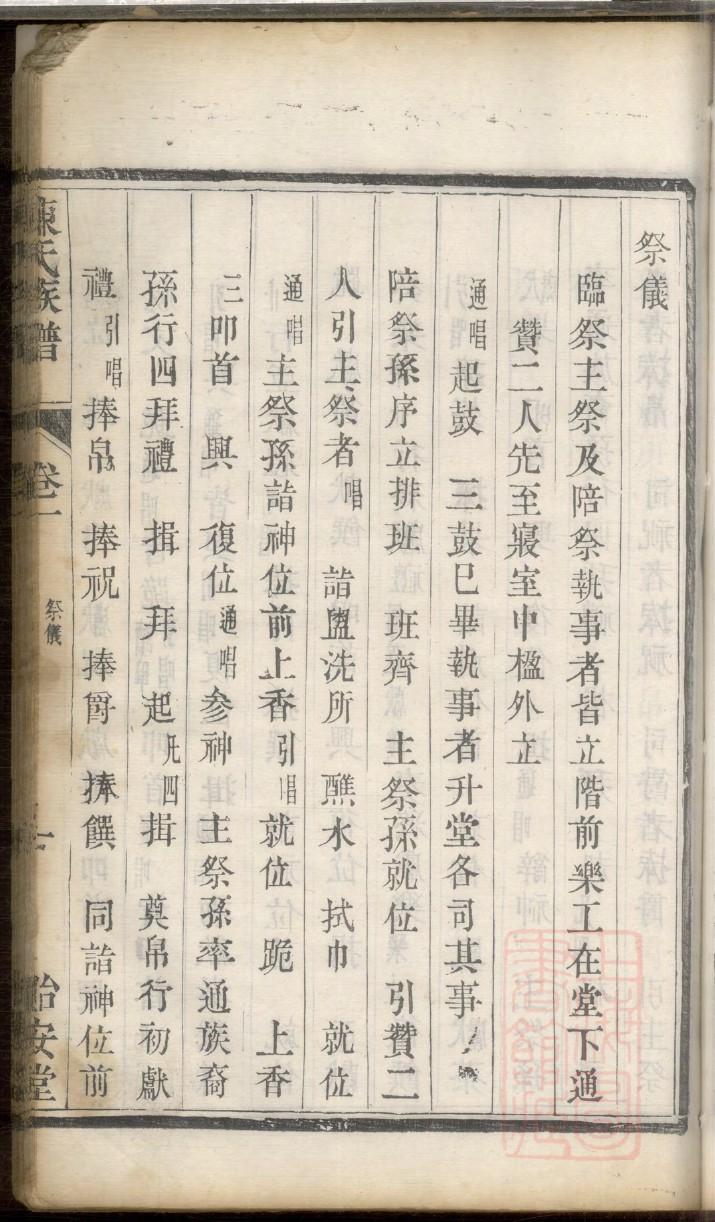 祭儀
臨祭主祭及陪祭執事者皆立階前樂工在堂下通
贊二人先至寢室中楹外立
通唱起鼓　三鼓巳畢執事者升堂各司其事
陪祭孫序立排班　班齊　主祭孫就位　引贊二
人引主祭者唱　詣盥洗所　醮水　拭巾　就位
通唱主祭孫詣神位前上香引唱就位　跪　上香
三叩首　興　復位通唱參神　主祭孫率通族裔
孫行四拜禮　揖　拜　起凡四揖　奠帛行初獻
禮引唱捧帛　捧祝　捧爵　捧饌　同詣神位前
陳氏族譜　卷一　祭儀　怡安堂